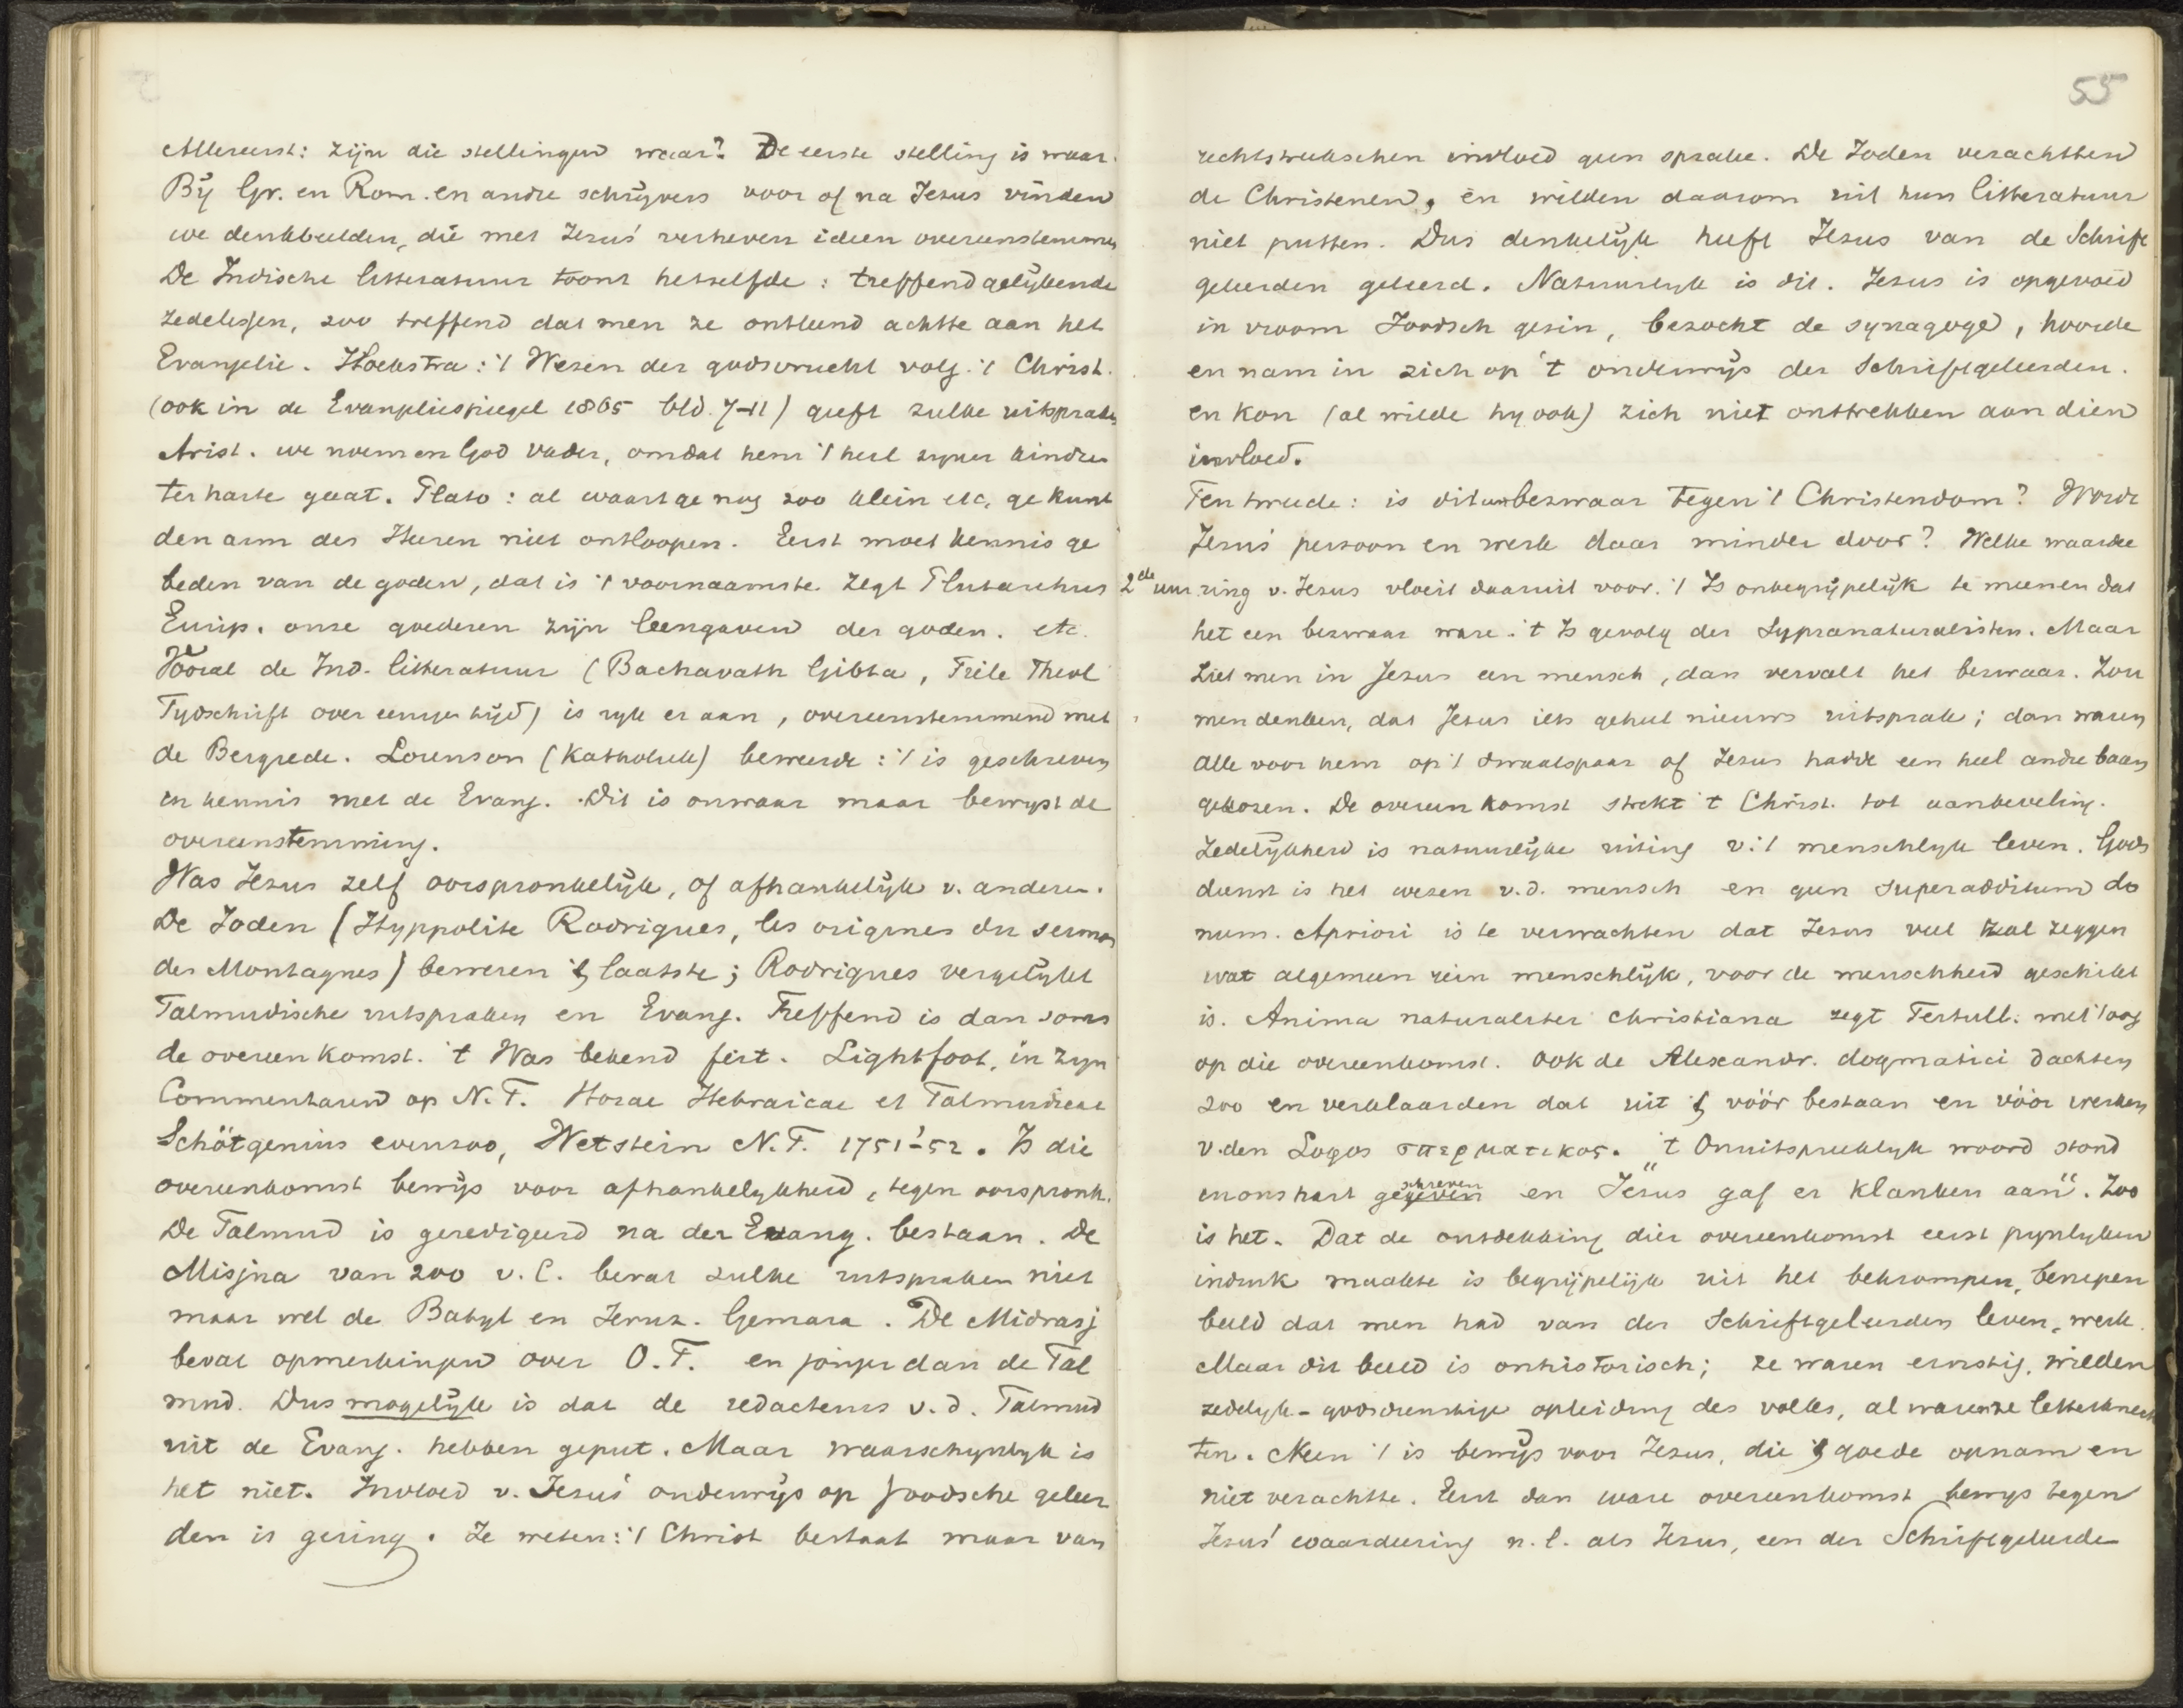 Allereerst: zijn die stellingen waar? De eerste stelling is waar.
By Gr. en Rom. en andre schrijvers voor of na Jezus vinden
we denkbeelden, die met Jezus' verheven ideen overeenstemmen
De Indische litteratuur toont hetzelfde: treffend gelijkende
zedelessen, zoo treffend dat men ze ontleend achtte aan het
Evangelie. Hoekstra: 't Wezen der godsvrucht volg. 't Christ.
(ook in de Evangeliespiegel 1865 bld. 7-11) geeft zulke uitspraken
Arist. we noemen God Vader, omdat hem 't heil zyner kindren
ter harte gaat. Plato: al waart ge nog zoo klein etc, ge kunt
den arm des Heeren niet ontloopen. Eerst moet kennis ge
beden van de goden, dat is 't voornaamste zegt Plutarchus
Eurip. onze goederen zijn leengaven der goden. etc.
Vooral de Ind. litteratuur (Bachavath Gibta, Theol
Tydschrift over eenigen tijd) is ryk er aan, overeenstemmend met
de Bergrede. Lorenson (Katholiek) beweerde: 't is geschreven
in kennis met de Evang. Dit is onwaar maar bewyst de
overeenstemming.
Was Jezus zelf oorspronkelijk, of afhankelijk v. anderen.
De Joden (Hyppolite Rodrigues, les origines du sermon
des Montagnes) beweren 't laatste; Rodrigues vergelykt
Talmudische uitspraken en Evang. Treffend is dan soms
de overeenkomst. 't Was bekend feit. Lightfoot, in zyn
Commentaren op N.T. Horae Hebraicae et Talmudicae
Schötgenius evenzoo, Wetstein N.T. 1751-'52. Is die
overeenkomst bewijs voor afhankelykheid, tegen oorspronk.
De Talmud is geredigeerd na der Evang. bestaan. De
Misjna van 200 v. C. bevat zulke uitspraken niet
maar wel de Babyl en Jeruz. Gemara. De Midrasj
bevat opmerkingen over O.T. en jonger dan de Tal
mud. Dus mogelijk is dat de redacteurs v.d. Talmud
uit de Evang. hebben geput. Maar waarschynlyk is
het niet. Invloed v. Jezus' onderwijs op Joodsche geleer
den is gering. Ze weten: 't Christ bestaat maar van
55
rechtstreekschen invloed geen sprake. De Joden verachtten
de Christenen, en wilden daarom uit hun litteratuur
niet putten. Dus denkelijk heeft Jezus van de Schrift
geleerden geleerd. Natuurlyk is dit. Jezus is opgevoed
in vroom Joodsch gezin, bezocht de synagoge, hoorde
en nam in zich op 't onderwijs der Schriftgeleerden.
en kon (al wilde hy ook) zich niet onttrekken aan dien
invloed.
Ten tweede: is dit een bezwaar tegen 't Christendom? Wordt
Jezus' persoon en werk daar minder door? Welke waarde
2de uur ring v. Jezus vloeit daaruit voor. 't Is onbegrijpelijk te meenen dat
het een bezwaar ware. 't Is gevolg der Sypranaturalisten. Maar
Ziet men in Jezus een mensch, dan vervalt het bezwaar. Zou
men denken, dat Jezus iets geheel nieuws uitsprak; dan waren
alle voor hem op 't dwaalspoor of Jezus hadde een heel andre baan
gekozen. De overeenkomst strekt 't Christ. tot aanbeveling.
Zedelijkheid is natuurlijke uiting v. 't menschlyk leven. Gods
dienst is het wezen v.d. mensch en geen superadditum do
num. Apriori is te verwachten dat Jezus veel zal zeggen
wat algemeen rein menschlijk, voor de menschheid geschikt
is. Anima naturaliter christiana zegt Tertull. met 't oog
op die overeenkomst. Ook de Alexandr. dogmatici dachten
zoo en verklaarden dat uit 't vóór bestaan en vóór werken
v. den Logos σπερματικος. "'t Onuitspreeklyk woord stond
in ons hart geschreven en Jezus gaf er klanken aan". Zoo
is het. Dat de ontdekking dier overeenkomst eerst pynlyken
indruk maakte is begrijpelijk uit het bekrompen, benepen
beeld dat men had van der Schriftgeleerden leven, werk.
Maar dit beeld is onhistorisch; ze waren ernstig, wilden
zedelyk-godsdienstige opleiding des volks, al waren ze letterknech
ten. Neen 't is bewijs voor Jezus, die 't goede opnam en
niet verachtte. Eerst dan ware overeenkomst bewys tegen
Jezus' waardeering n.l. als Jezus, een der Schriftgeleerde